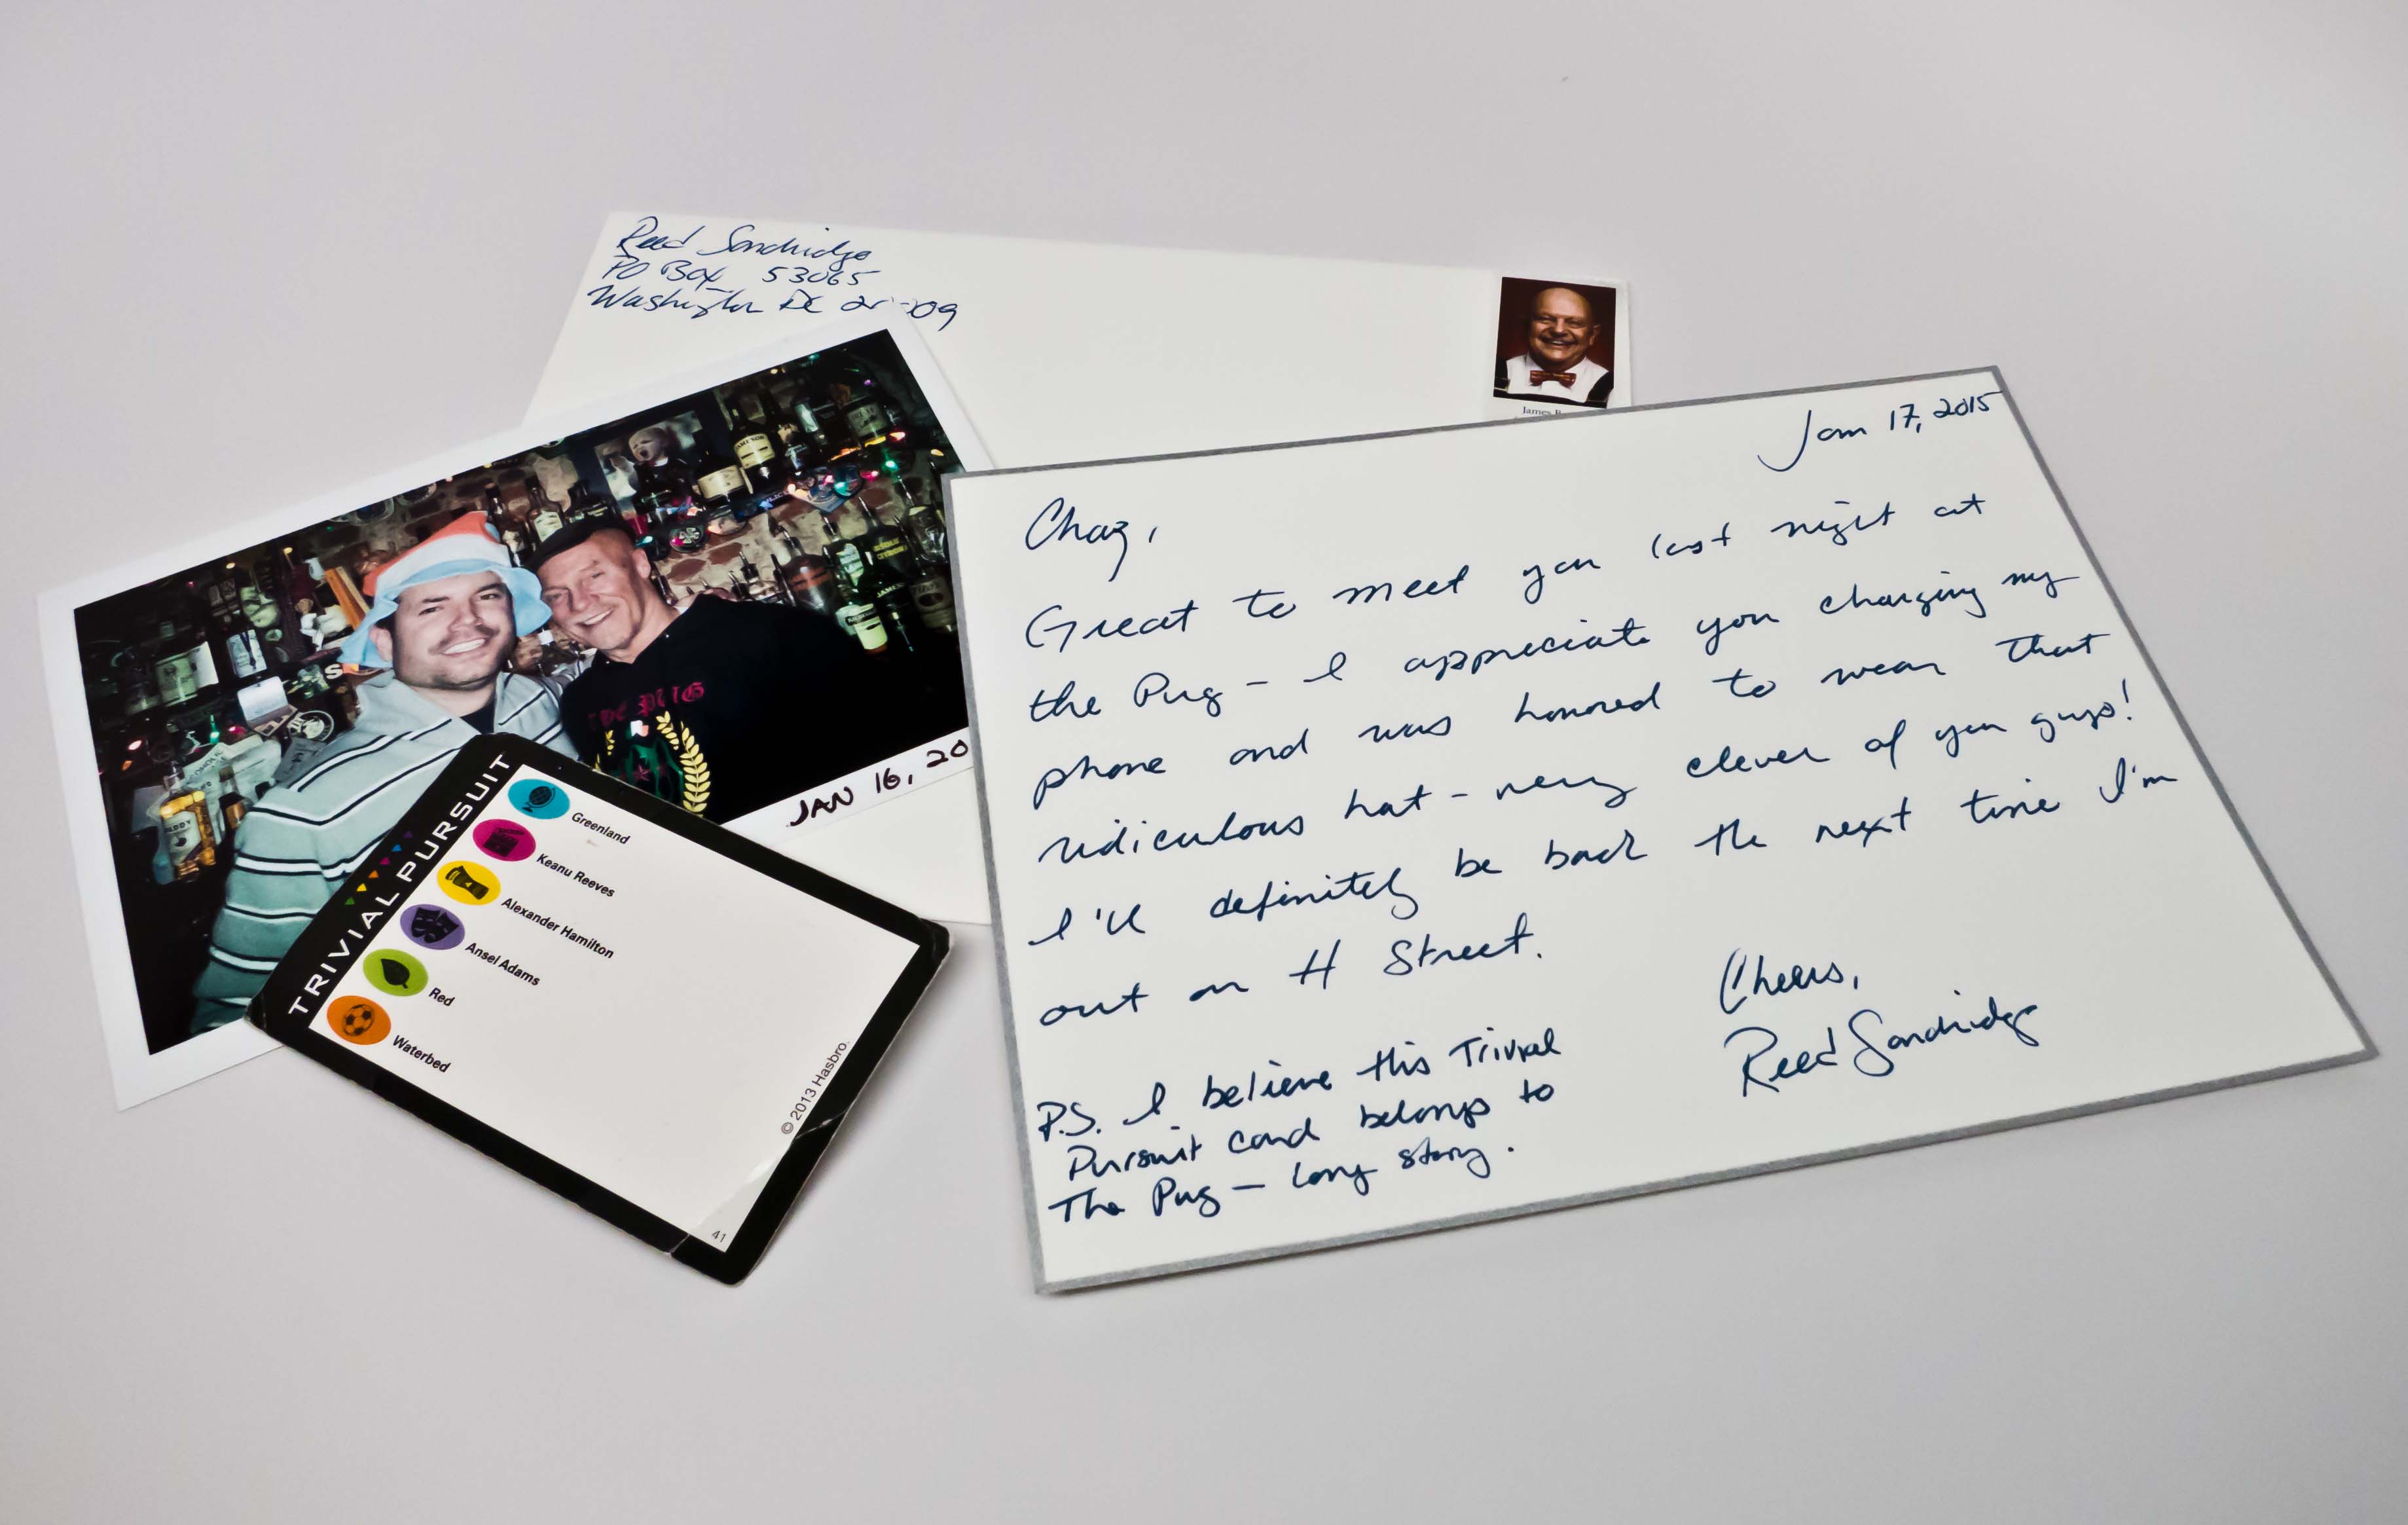 Reed Sandridge
PO Box 53065
Washington DC
James
JAMESON
THE PUG
JAN 16, 20
TRIVIAL PURSUIT
Greenland
Keanu Reeves
Alexander Hamilton
Ansel Adams
Red
Waterbed
© 2013 Hasbro.
41
Jan 17, 2015
Chaz,
Great to meet you last night at
the Pug - I appreciate you charging my
phone and was honored to wear that
ridiculous hat - very clever of you guys!
I'll definitely be back the next time I'm
out on H Street.
Cheers,
Reed Sandridge
P.S. I believe this Trivial
Pursuit card belongs to
The Pug - long story.